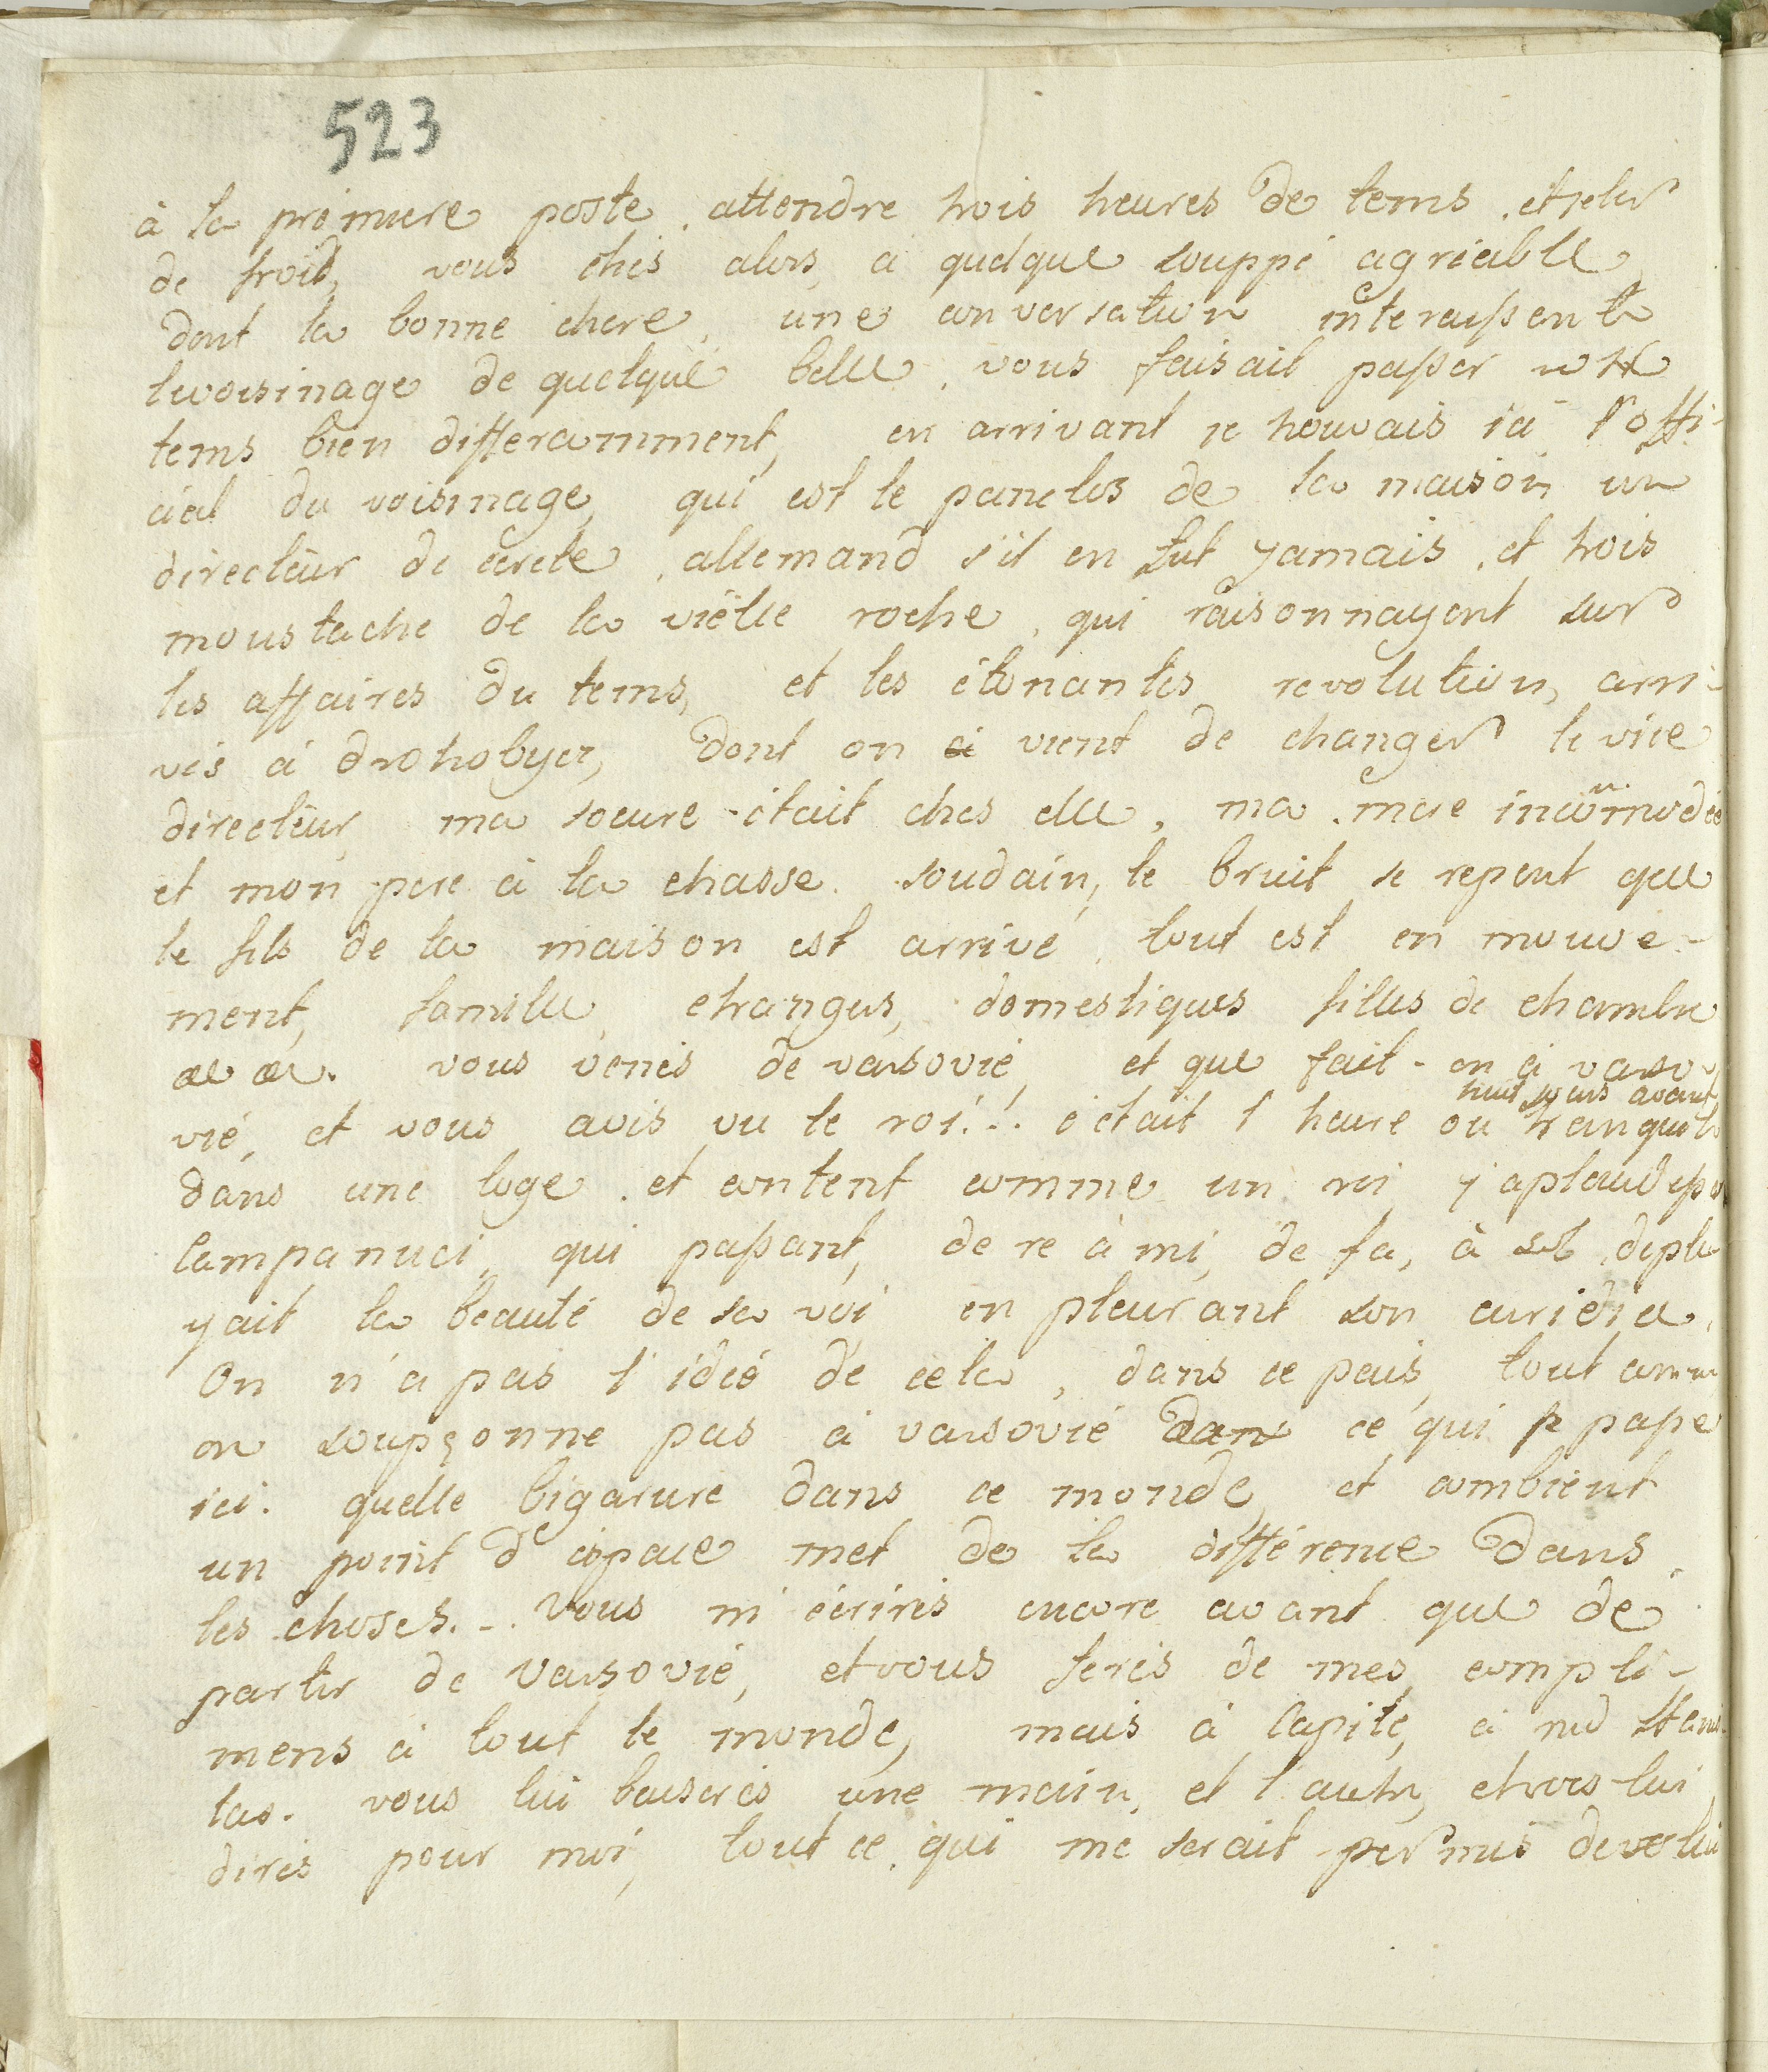 523
à la premiere poste. attendre trois heures de tems. et peter
de froid, vous etiés alors, à quelque souppé agréable
dont la bonne chere, une conversation interaissente
levoisinage de quelque belle, vous faisait passer
tems bien differamment, en arrivant je trouvais ici l'offi-
cial du voisinage, qui est le panclos de la maison, un
directeur de cercle, allemand s'il en fut jamais, et trois
moustache de la viëlle roche, qui raisonnayent sur
les affaires du tems, et les étonantes revolution, arri-
vés à drohobycz, dont on vient de changer le vice
directeur, ma soeure était chés elle, ma mere incommodée
et mon pere à la chasse. soudain, le bruit se repent que
le fils de la maison est arrivé, tout est en mouve-
ment, famille, etrangers, domestiques filles de chambre
&c &c. vous venés de varsovié, et que fait-on à varso-
vié, et vous avés vu le roi!.! c'etait l'heure ou huit jours avant,
tranquile
dans une loge. et content comme un roi j'aplaudissa
Campanuci, qui passant, de re à mi, de fa, à sol deplo
yait la beauté de sa voi en pleurant son euridice.
On n'a pas l'idée de cela, dans ce païs, tout comme
on soupçonne pas à varsovié ce qui se passe
ici. quelle bigarure dans ce monde, et combient
un point d'espace met de la différence dans
les choses.-. Vous m'écrirés encore avant que de
partir de Varsovié, et vous ferés de mes compli-
mens à tout le monde, mais à Capité, à
tas. vous lui baiserés une main, et l'autre, et vous lui
dirés pour moi, tout ce qui me serait permis de